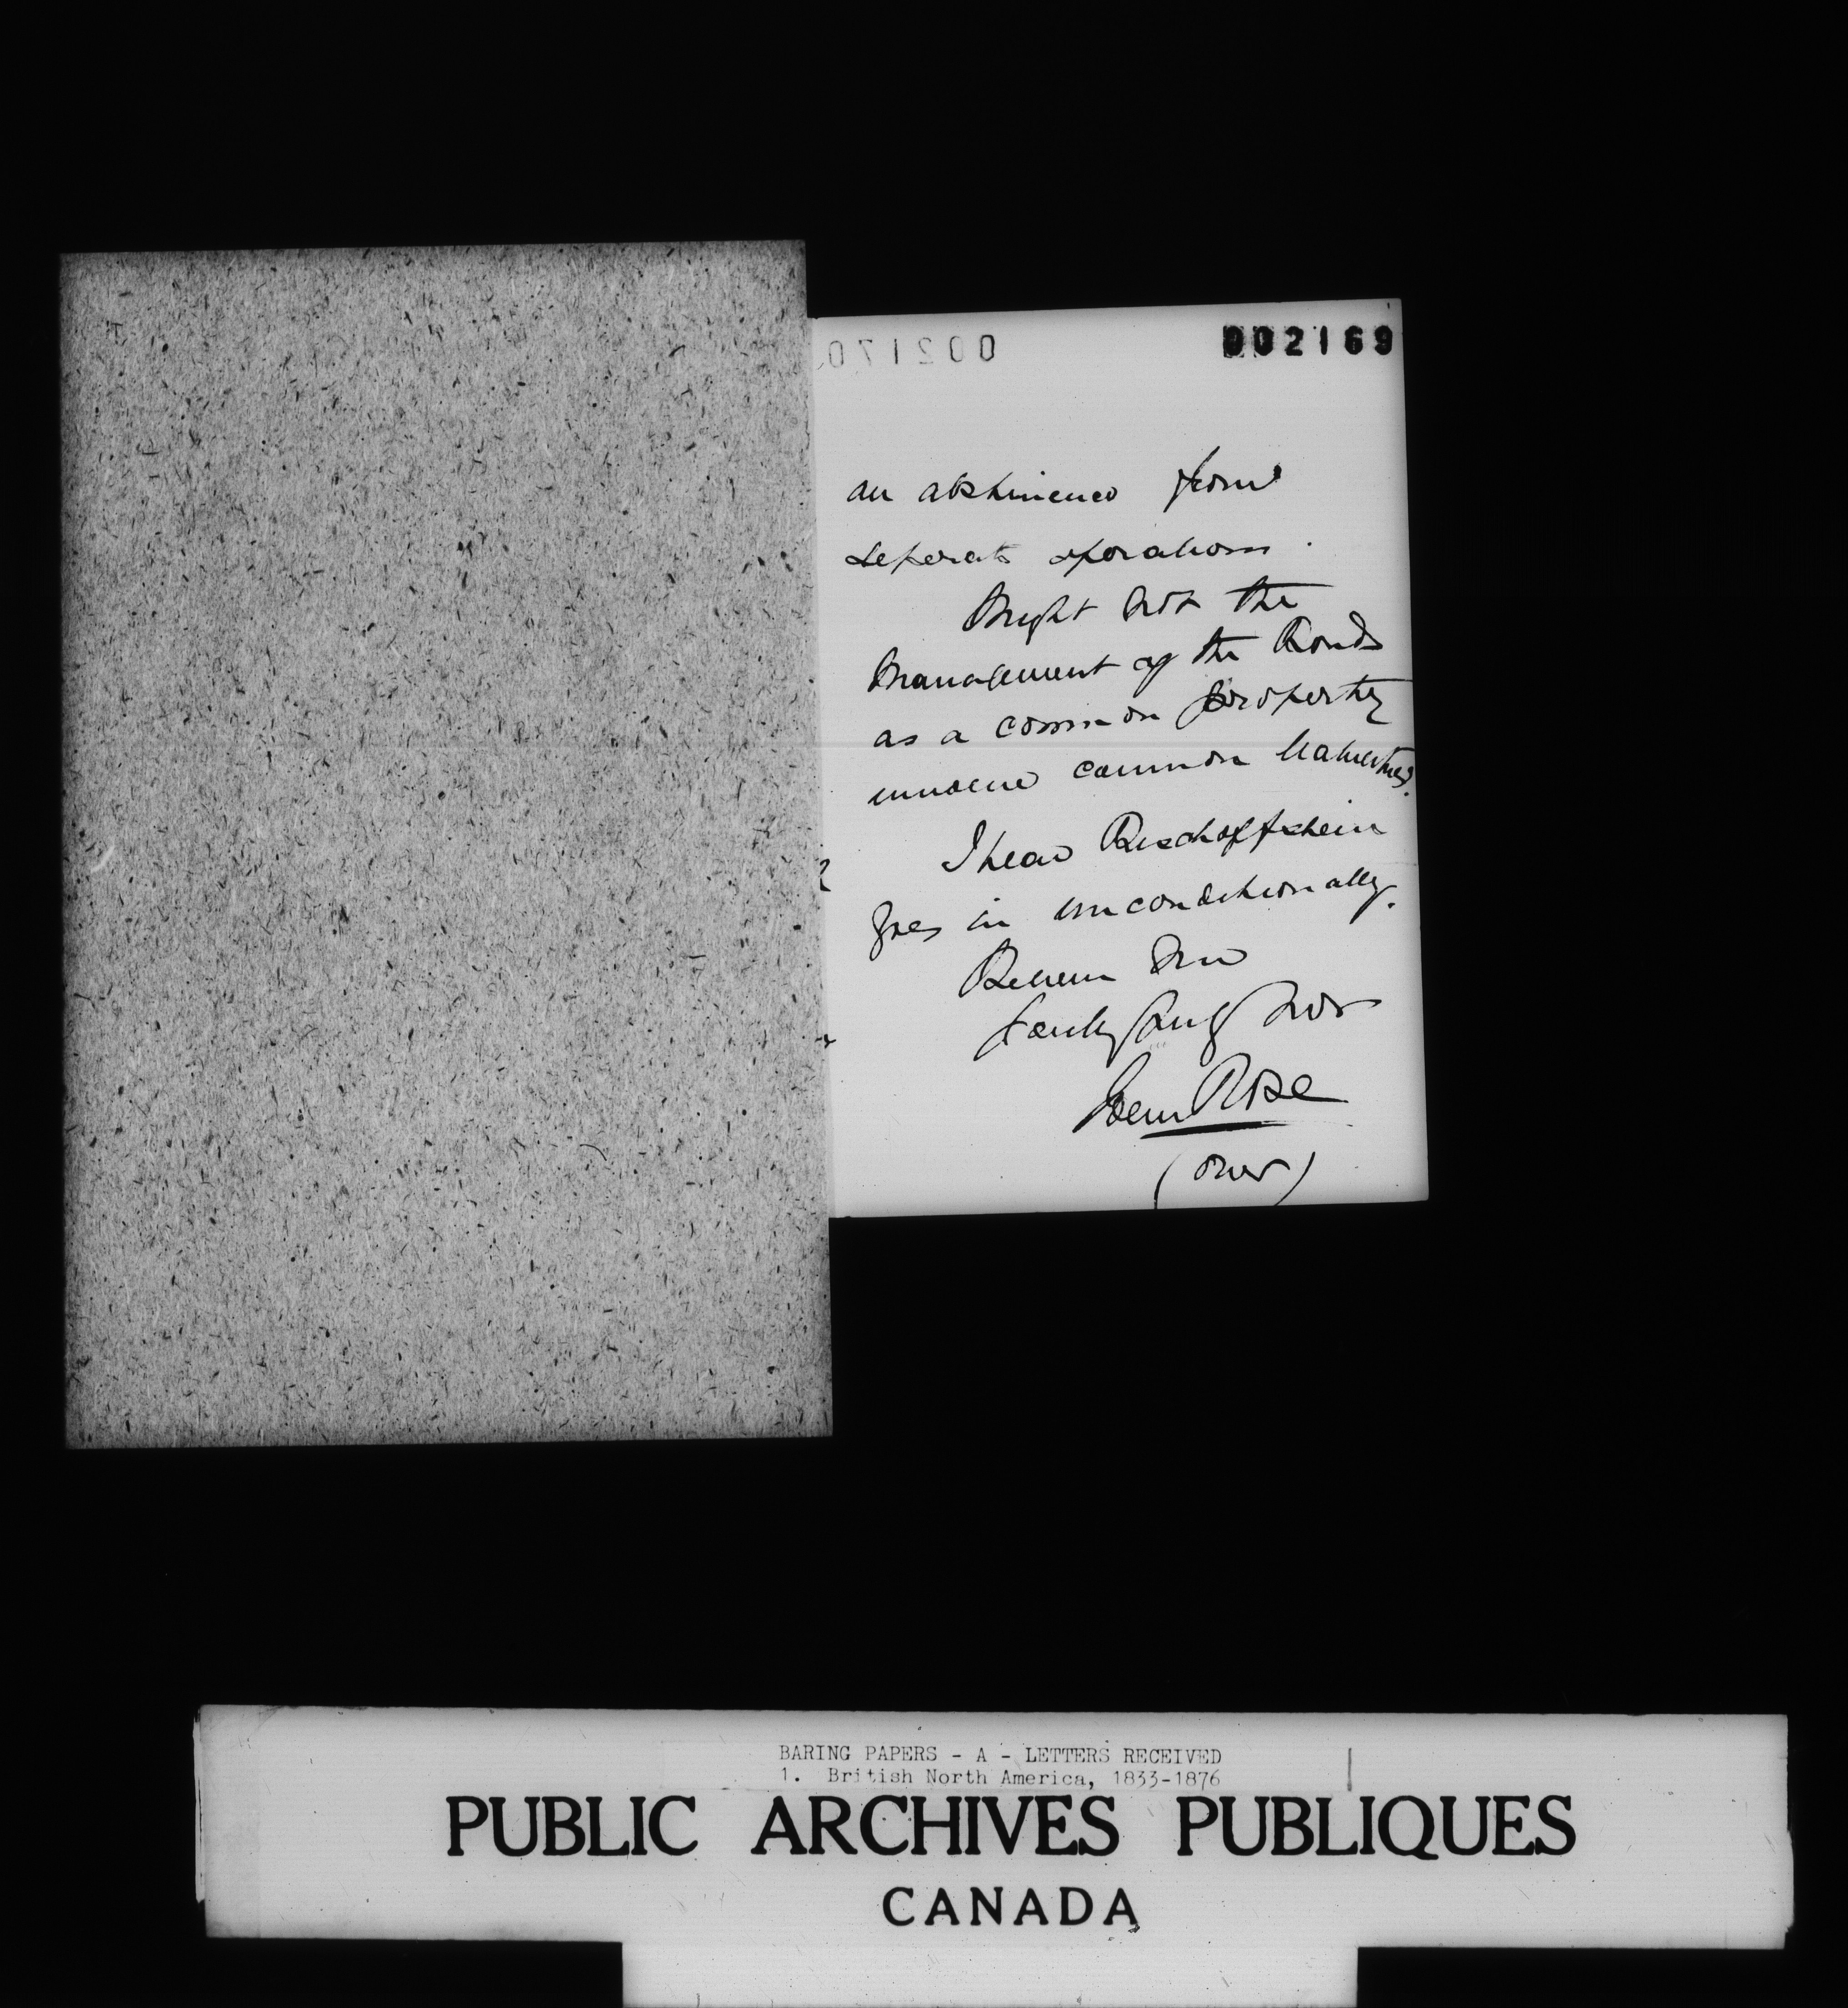 002170
002169
an abstinence from
seperate operations.
Might not the
Management of the Bonds
as a common property
involve common liabilities?
I hear Bischoffshein
goes in unconditionally.
Believe me
John Rose
(over)
BARING PAPERS - A - LETTERS RECEIVED
1. British North America, 1833-1876
PUBLIC ARCHIVES PUBLIQUES
CANADA